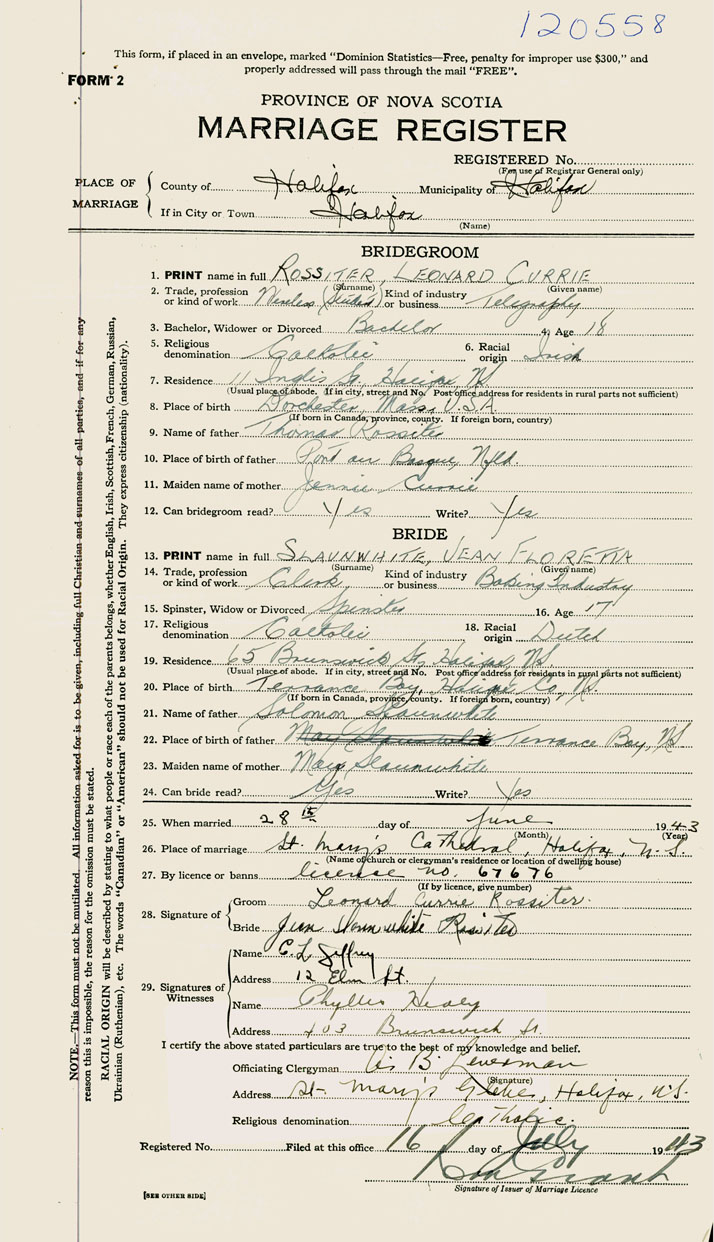 120558
This form, if placed in an envelope, marked "Dominion Statistics—Free, penalty for improper use $300," and
properly addressed will pass through the mail "FREE".
FORM 2
PROVINCE OF NOVA SCOTIA
MARRIAGE REGISTER
REGISTERED No.
(For use of Registrar General only)
PLACE OF MARRIAGE
County of Halifax Municipality of Halifax
If in City or Town Halifax
(Name)
BRIDEGROOM
1. PRINT name in full ROSSITER, LEONARD CURRIE
(Surname) (Given name)
2. Trade, profession or kind of work Wireless (Student) Kind of industry or business Telegraphy
3. Bachelor, Widower or Divorced Bachelor 4. Age 18
5. Religious denomination Catholic 6. Racial origin Irish
7. Residence 11 Inglis St, Halifax, NS
(Usual place of abode. If in city, street and No. Post office address for residents in rural parts not sufficient)
8. Place of birth Dorchester, Mass, U.S.A
(If born in Canada, province, county. If foreign born, country)
9. Name of father Thomas Rossiter
10. Place of birth of father Port au Basque, Nfld.
11. Maiden name of mother Jennie Currie
12. Can bridegroom read? Yes Write? Yes
BRIDE
13. PRINT name in full SLAUNWHITE, JEAN FLORETTA
(Surname) (Given name)
14. Trade, profession or kind of work Clerk Kind of industry or business Baking Industry
15. Spinster, Widow or Divorced Spinster 16. Age 17
17. Religious denomination Catholic 18. Racial origin Dutch
19. Residence 65 Brunswick St, Halifax, NS.
(Usual place of abode. If in city, street and No. Post office address for residents in rural parts not sufficient)
20. Place of birth Terrance Bay, Halifax Co, NS.
(If born in Canada, province, county. If foreign born, country)
21. Name of father Solomon Slaunwhite
22. Place of birth of father May Slaunwhite Terrance Bay, NS
23. Maiden name of mother May Slaunwhite
24. Can bride read? Yes Write? Yes
25. When married 28th day of June 1943
(Month) (Year)
26. Place of marriage St. Mary's Cathedral, Halifax, N.S
(Name of church or clergyman's residence or location of dwelling house)
27. By licence or banns license no. 67676
(If by licence, give number)
28. Signature of
Groom Leonard Currie Rossiter.
Bride Jean Slaunwhite Rossiter
29. Signatures of Witnesses
Name C. L. Jeffrey
Address 12 Elm St.
Name Phyllis Healy
Address 403 Brunswick St.
I certify the above stated particulars are true to the best of my knowledge and belief.
Officiating Clergyman B.
(Signature)
Address St. Mary's Glebe, Halifax, N.S.
Religious denomination Catholic.
Registered No. Filed at this office 16 day of July 1943
Signature of Issuer of Marriage Licence
[SEE OTHER SIDE]
NOTE.—This form must not be mutilated. All information asked for is to be given, including full Christian and surnames of all parties, and if for any
reason this is impossible, the reason for the omission must be stated.
RACIAL ORIGIN will be described by stating to what people or race each of the parents belongs, whether English, Irish, Scottish, French, German, Russian,
Ukrainian (Ruthenian), etc. The words "Canadian" or "American" should not be used for Racial Origin. They express citizenship (nationality).